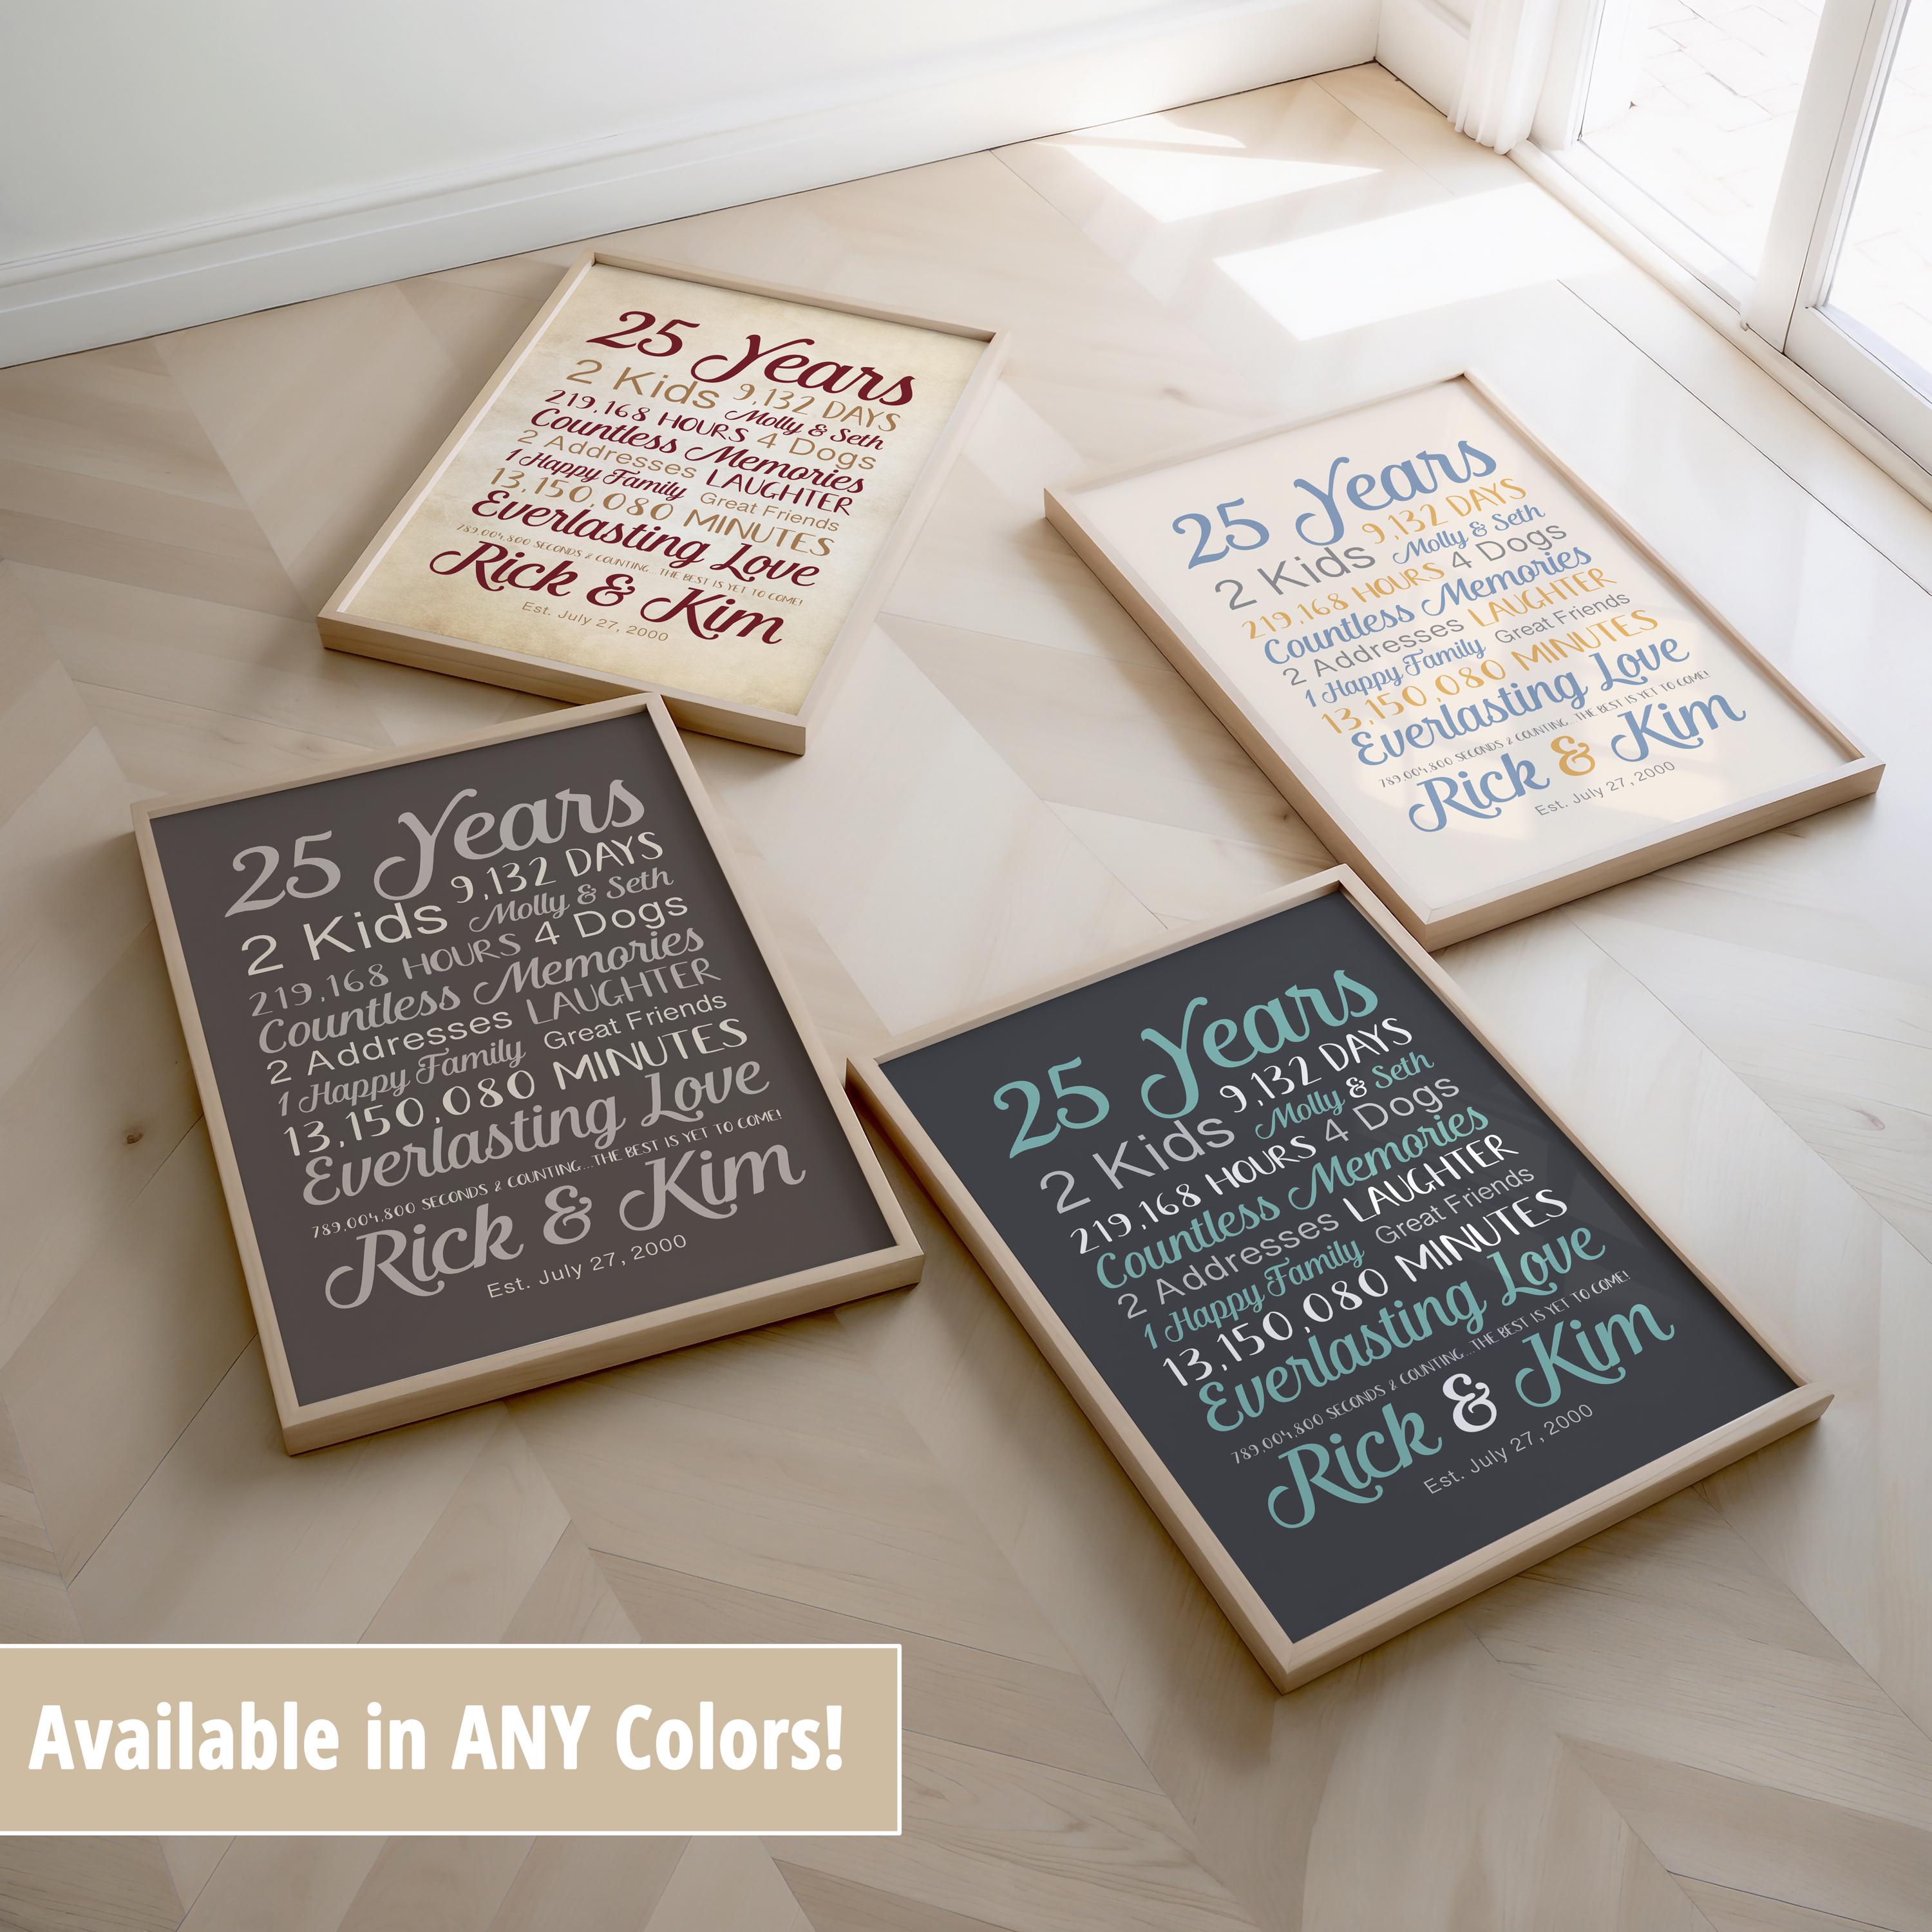 25 Years
2 Kids 9,132 DAYS
Molly & Seth
219,168 HOURS 4 Dogs
Countless Memories
2 Addresses LAUGHTER
1 Happy Family Great Friends
13,150,080 MINUTES
Everlasting Love
789,004,800 SECONDS & COUNTING...THE BEST IS YET TO COME!
Rick & Kim
Est. July 27, 2000
25 Years
2 Kids 9,132 DAYS
Molly & Seth
219,168 HOURS 4 Dogs
Countless Memories
2 Addresses LAUGHTER
1 Happy Family Great Friends
13,150,080 MINUTES
Everlasting Love
789,004,800 SECONDS & COUNTING...THE BEST IS YET TO COME!
Rick & Kim
Est. July 27, 2000
25 Years
2 Kids 9,132 DAYS
Molly & Seth
219,168 HOURS 4 Dogs
Countless Memories
2 Addresses LAUGHTER
1 Happy Family Great Friends
13,150,080 MINUTES
Everlasting Love
789,004,800 SECONDS & COUNTING...THE BEST IS YET TO COME!
Rick & Kim
Est. July 27, 2000
25 Years
2 Kids 9,132 DAYS
Molly & Seth
219,168 HOURS 4 Dogs
Countless Memories
2 Addresses LAUGHTER
1 Happy Family Great Friends
13,150,080 MINUTES
Everlasting Love
789,004,800 SECONDS & COUNTING...THE BEST IS YET TO COME!
Rick & Kim
Est. July 27, 2000
Available in ANY Colors!